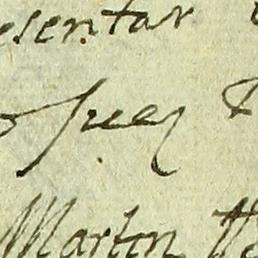 esentar
Juez
Martin